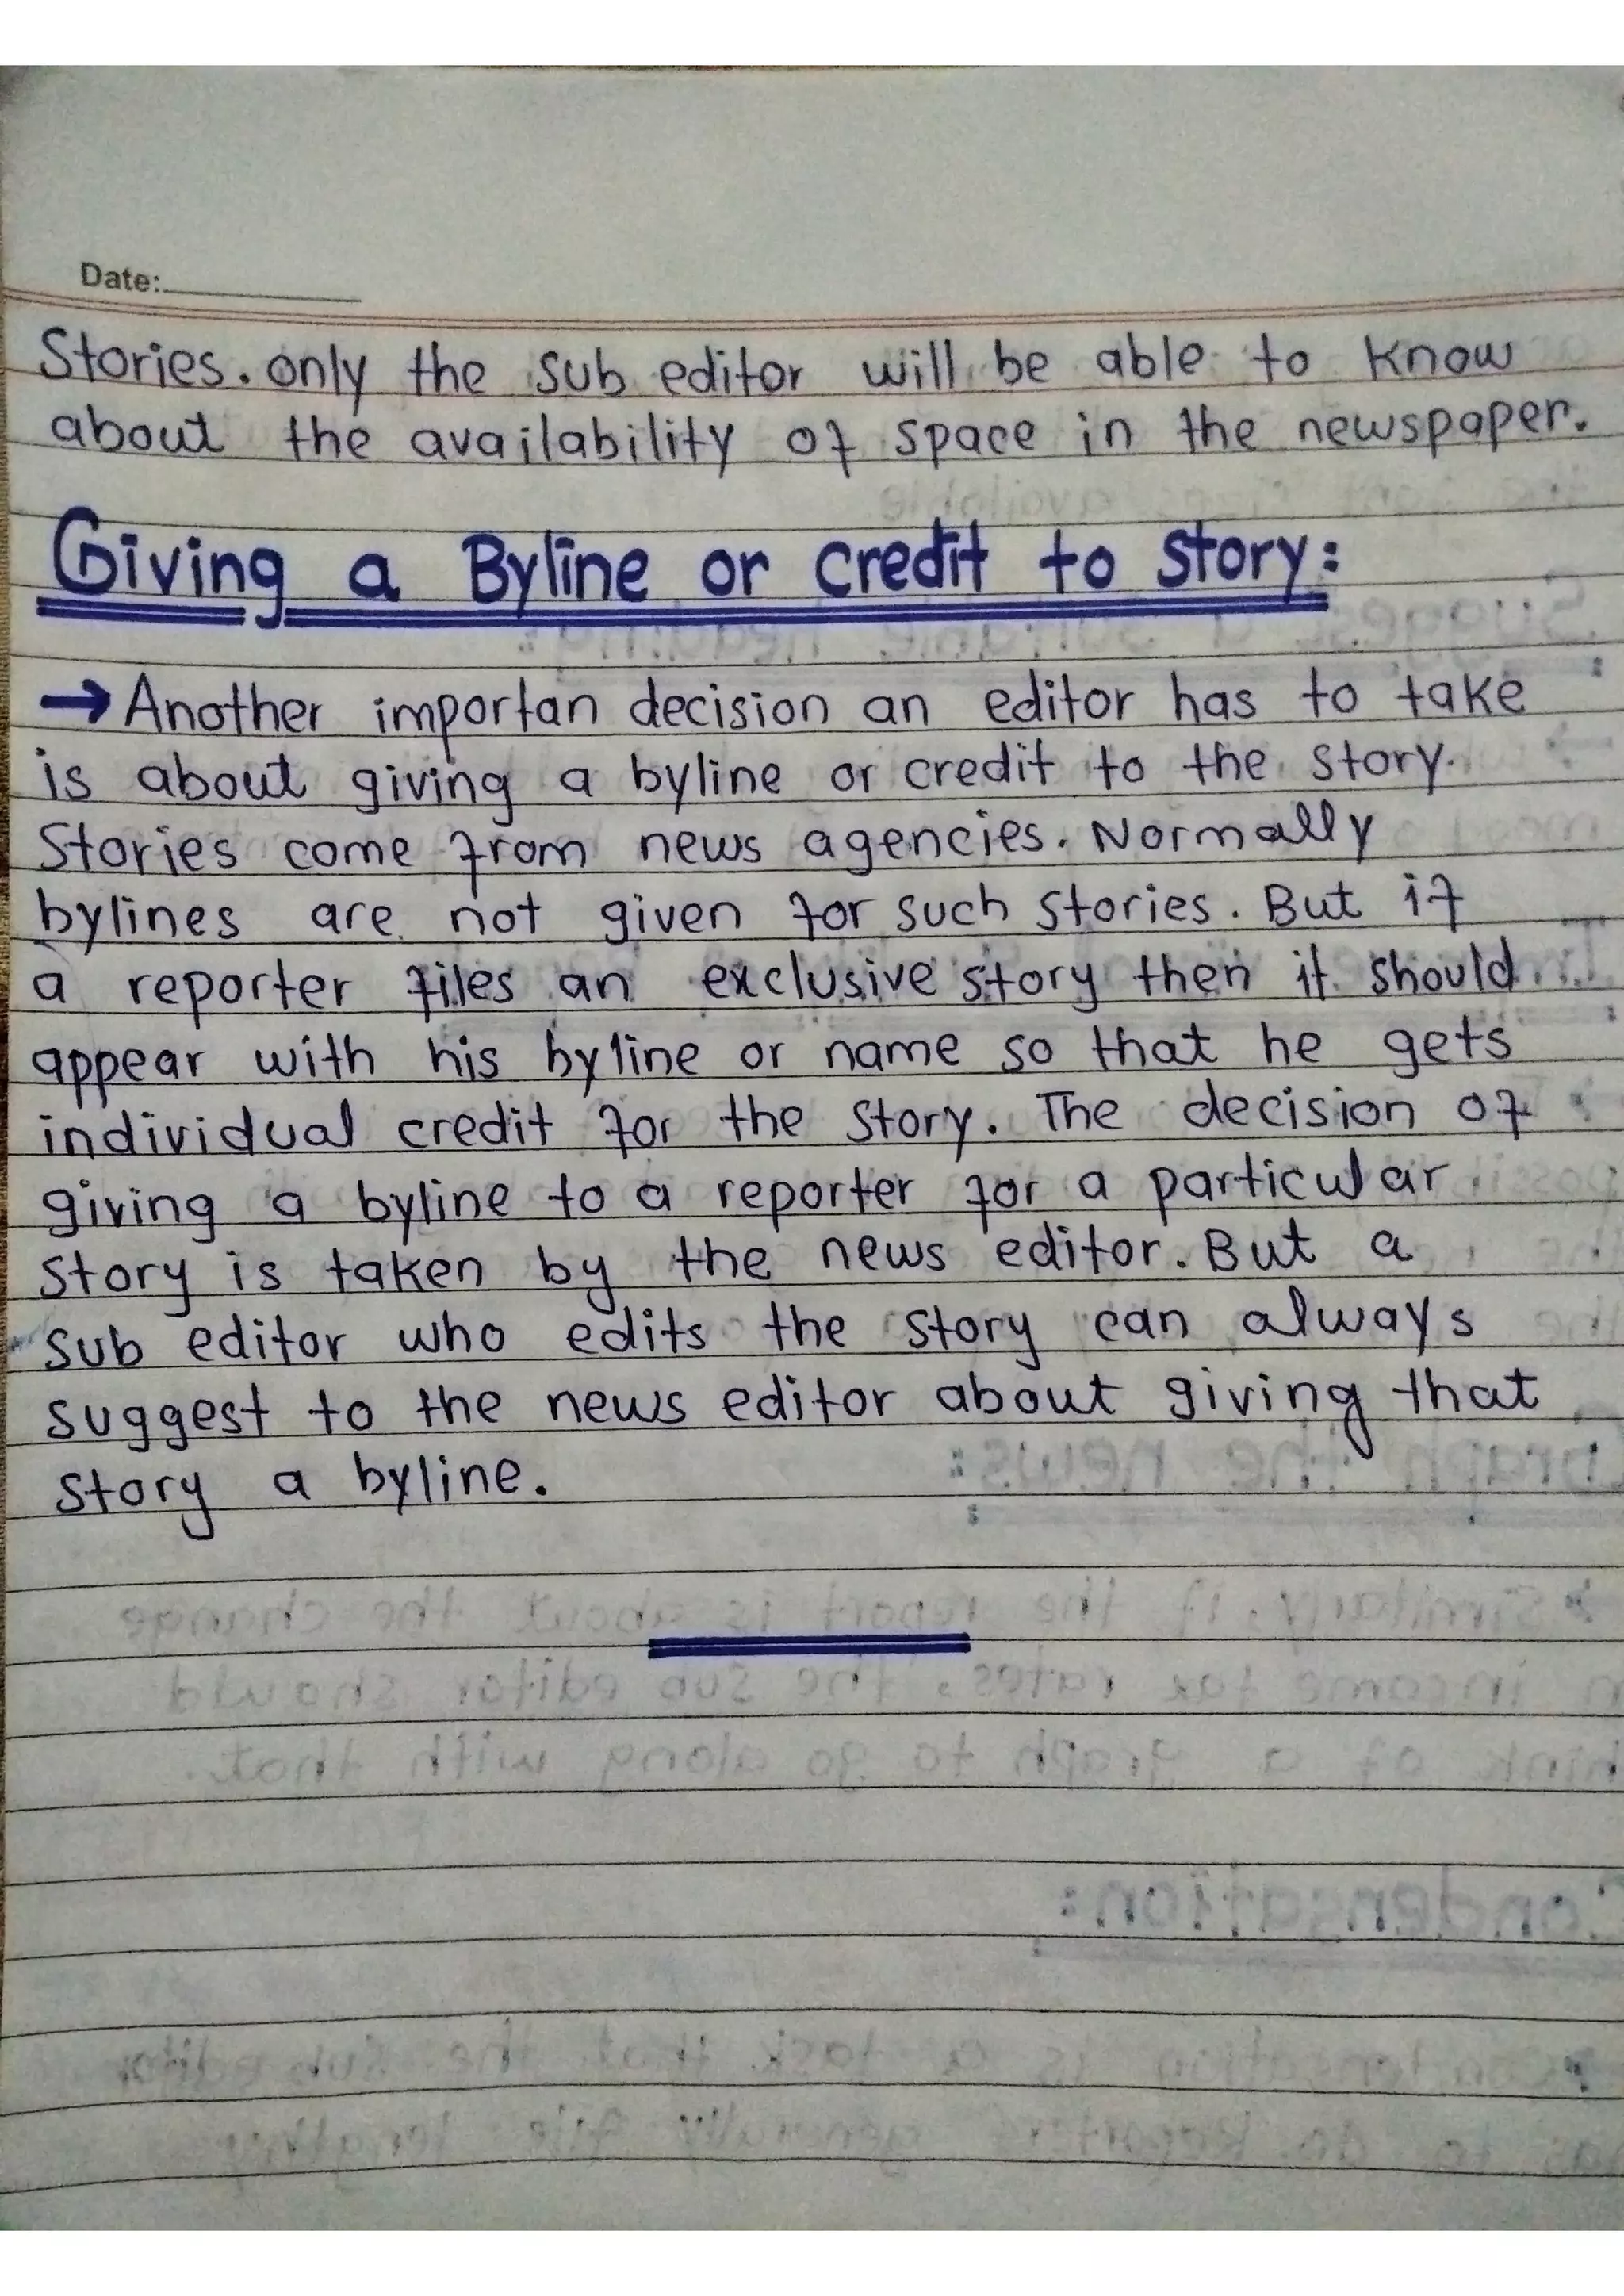 Date:
Stories. only the sub editor will be able to know
about the availability of space in the newspaper.
Giving a Byline or credit to story:
→ Another importan decision an editor has to take
is about giving a byline or credit to the story.
Stories come from news agencies. Normally
bylines are not given for such stories. But if
a reporter files an exclusive story then it should
appear with his byline or name so that he gets
individual credit for the story. The decision of
giving a byline to a reporter for a particular
story is taken by the news editor. But a
sub editor who edits the story can always
suggest to the news editor about giving that
story a byline.